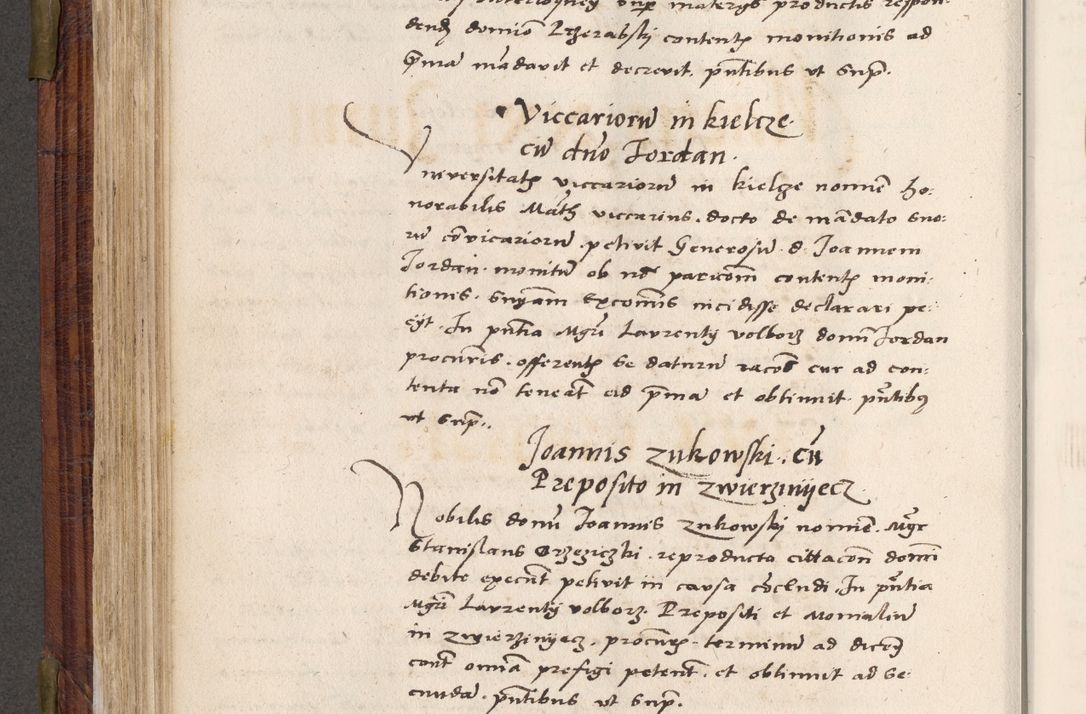 dendum domino Lgerabskj contentis monitionis ad
prima mandavit et decrevit. pntibus ut supra.
Viccariorum in kielcze
cum dno Jordan.
Universitatis viccariorum in kielcze nomine ho-
norabilis Math viccarius, docto de mandato suo-
rum convicariorum, petivit Generosum d. Joannem
Jordan. monitum ob non paricom contentis moni-
tionis. snyam Excomis incidisse declarari pe-
cijt. In pntia Mgri Laurentij volborz domini Jordan
procuris. offerentis se daturum racos cur ad con-
tenta no teneat ad prima et obtinuit pntibus
ut supra.
Joannis zukowski. cum
Preposito in zwierzinijecz
Nobilis domini Joannis zukowskj nomine. Mgr
Stanislaus reproducta cittacon domini
debite execut petivit in causa concludi. In pntia
Mgri Laurentij volborz. Prepositi et Monialium
in zwierzinijecz, procuris. terminum ad dicendum
cont omia prefigi petent. et obtinuit ad se-
cunda. pntibus ut supra.